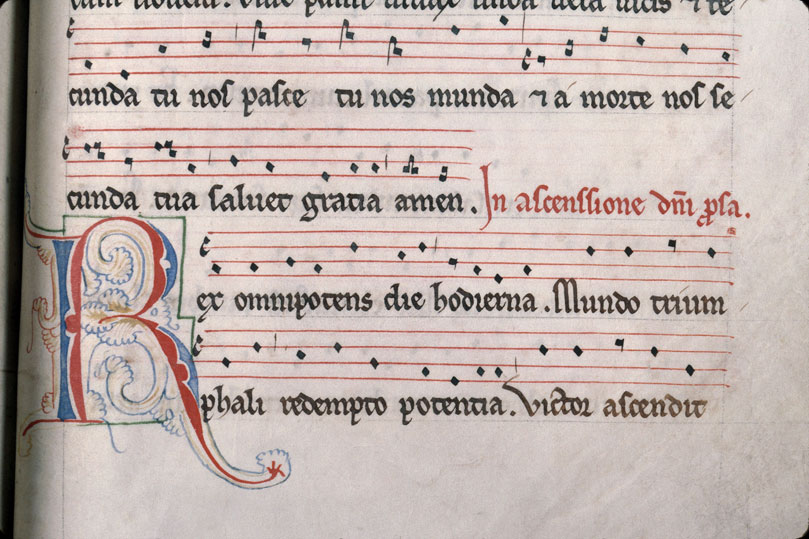 cunda tu nos pasce tu nos munda ⁊ a morte nos se
cunda tua saluet gratia amen. In ascenssione dn̄i ꝓsa.
Rex omnipotens die hodierna. Mundo trium
phali redempto potentia. Victor ascendit